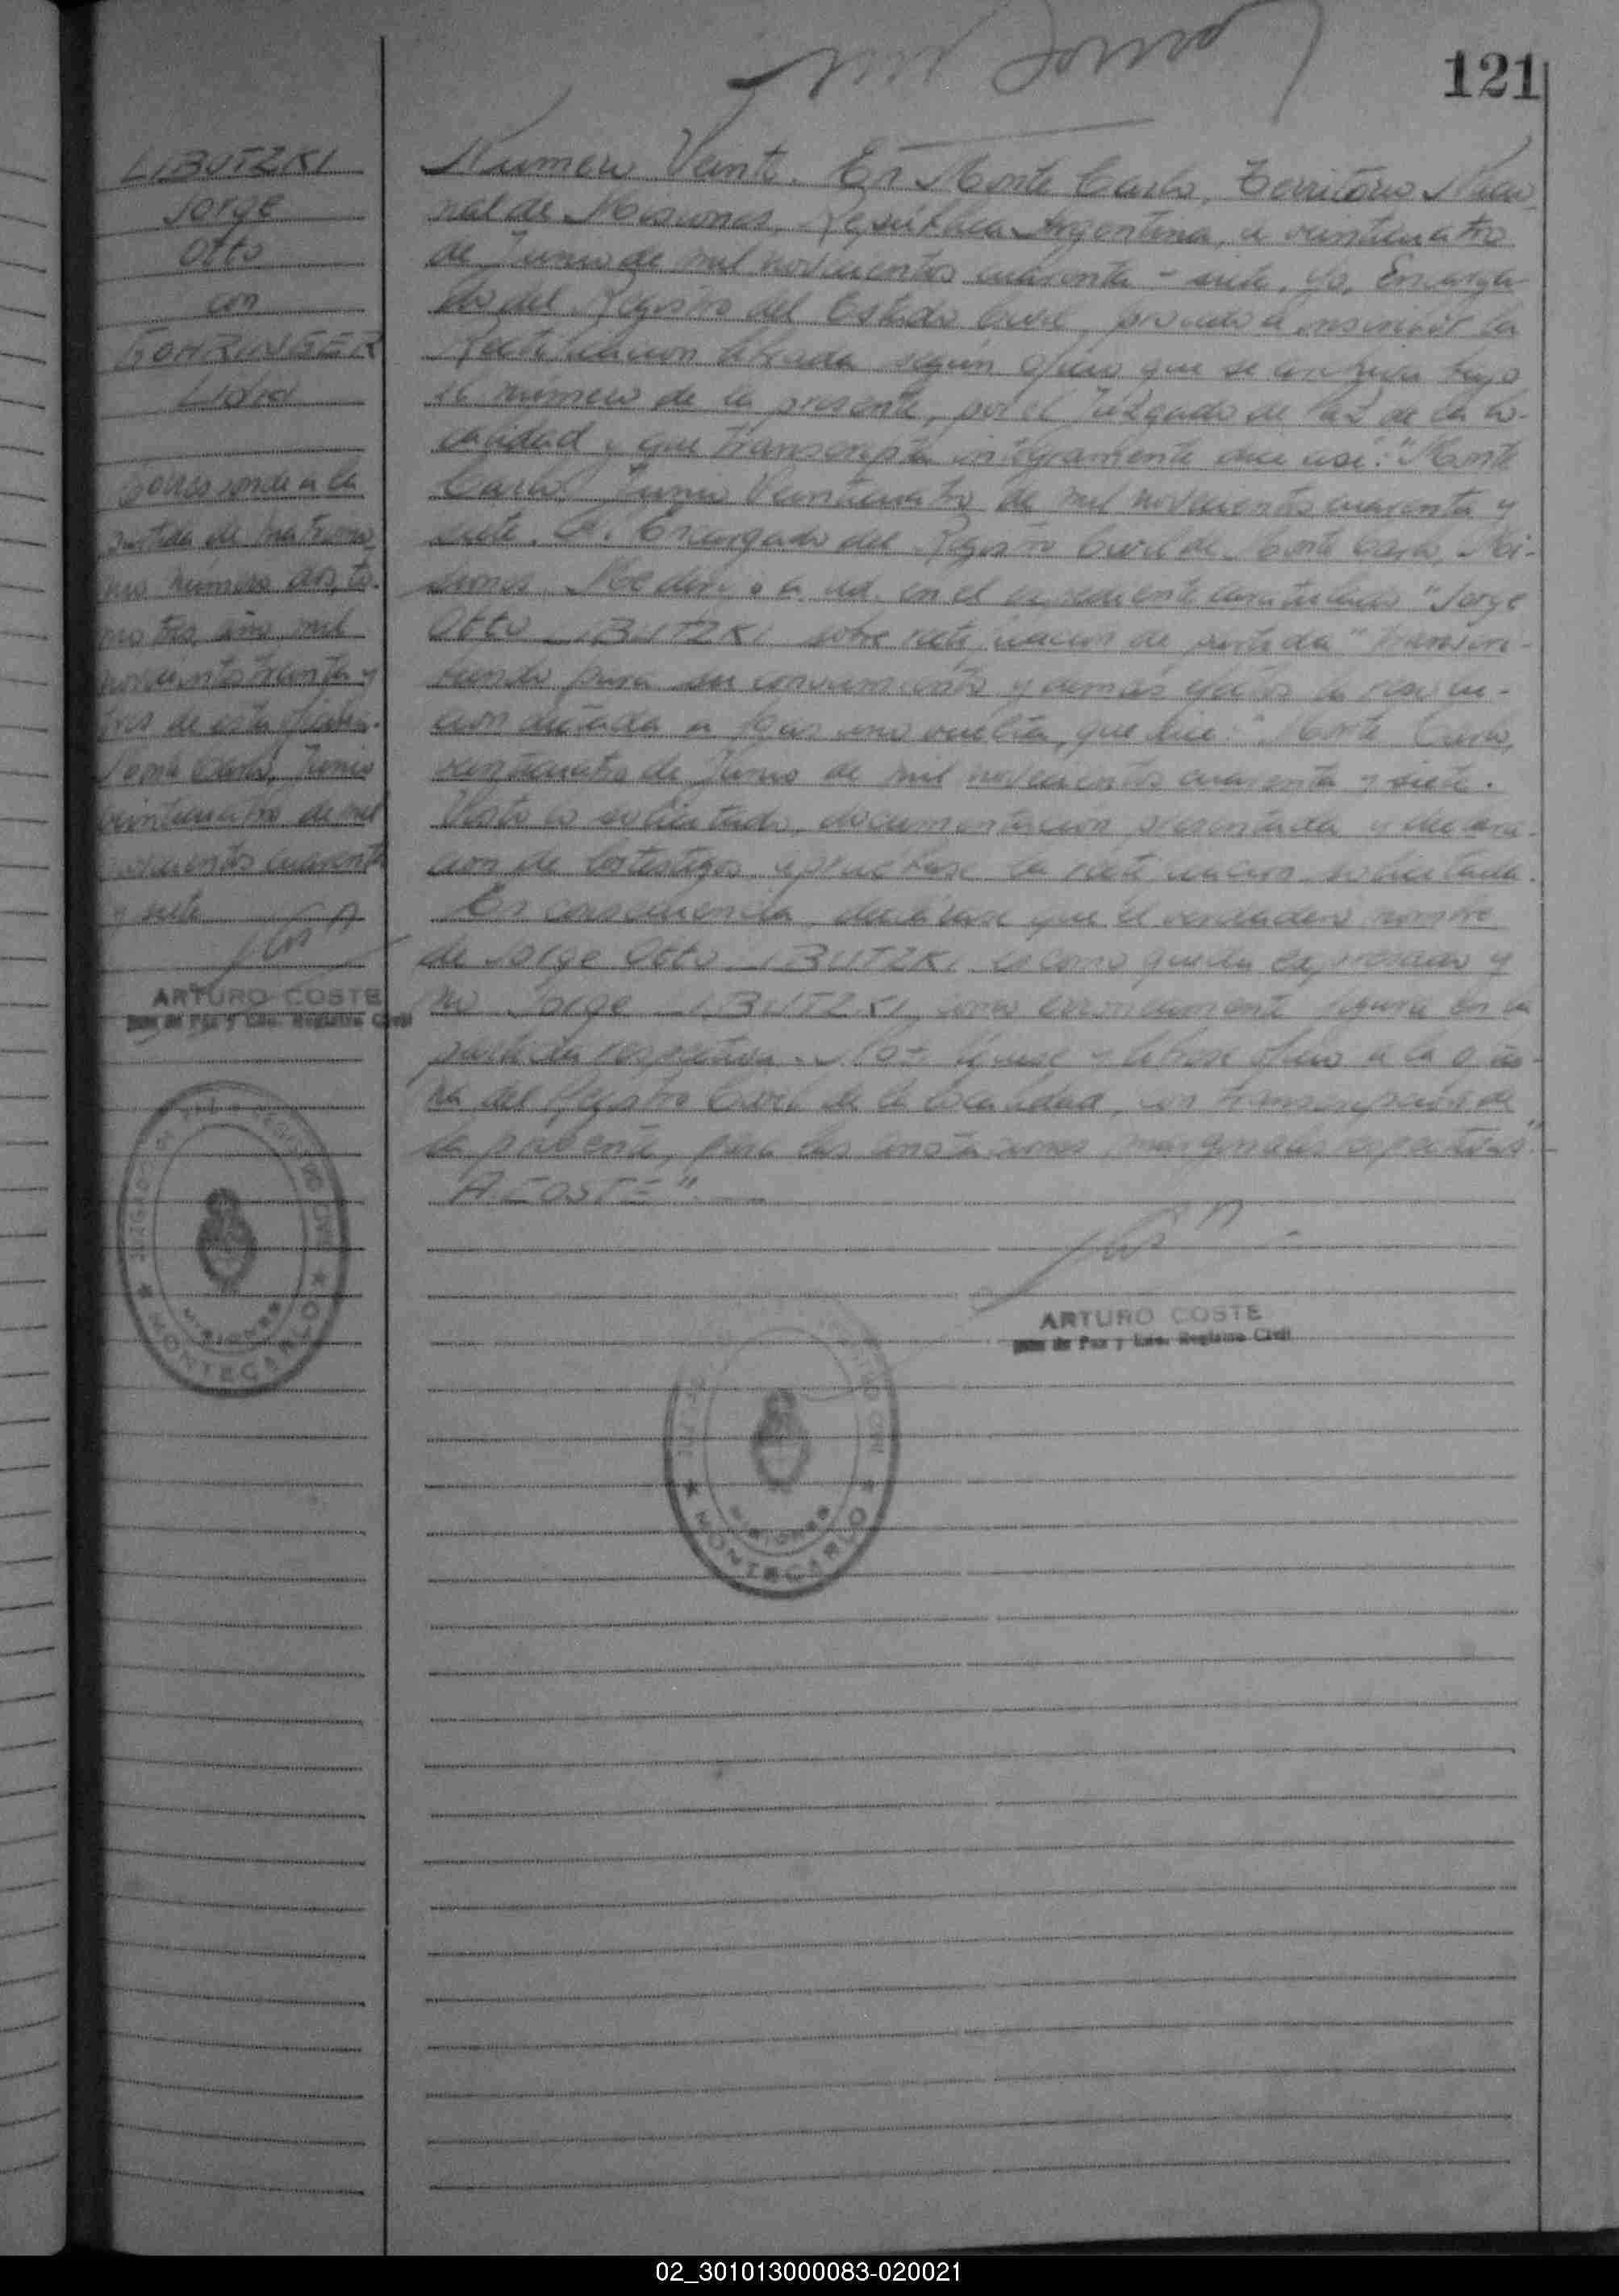 121
LIBUTZKI
Jorge
Otto
con
GOHRINGER
Lidia
Corresponde a la
partida de matrimo-
nio número dos, to-
mo tres, año mil
novecientos treinta y
tres de esta oficina.
Monte Carlo, Junio
veinticuatro de mil
novecientos cuarenta
y siete
ARTURO COSTE
Juez de Paz y Enc. Registro Civil
JUZGADO DE PAZ Y REGISTRO CIVIL
MISIONES
MONTECARLO
Número Veinte. En Monte Carlo, Territorio Nacio-
nal de Misiones, República Argentina, a veinticuatro
de Junio de mil novecientos cuarenta - siete, yo, Encarga-
do del Registro del Estado Civil, procedo a inscribir la
Rectificación librada según oficio que se archiva bajo
el número de la presente, por el Juzgado de Paz de la lo-
calidad y que transcripta integramente dice así: "Monte
Carlo, Junio Veinticuatro de mil novecientos cuarenta y
siete. Al Encargado del Registro Civil de Monte Carlo, Mi-
siones. Me dirijo a ud. en el expediente caratulado "Jorge
Otto LIBUTZKI sobre rectificación de partida" transcri-
biendo para su conocimiento y demás efectos la resolu-
ción dictada a fojas una vuelta, que dice: "Monte Carlo,
veinticuatro de Junio de mil novecientos cuarenta y siete.
Visto lo solicitado, documentación presentada y declara-
ción de los testigos, apruébase la rectificación solicitada.
En consecuencia, declárase que el verdadero nombre
de Jorge Otto LIBUTZKI es como queda expresado y
no Jorge LIBUTZKI, como erróneamente figura en la
partida respectiva. Notifíquese y líbrese oficio a la ofici-
na del Registro Civil de la localidad, con transcripción de
la presente, para las anotaciones marginales respectivas".
A. COSTE".
ARTURO COSTE
Juez de Paz y Enc. Registro Civil
MISIONES
MONTECARLO
02_301013000083-020021